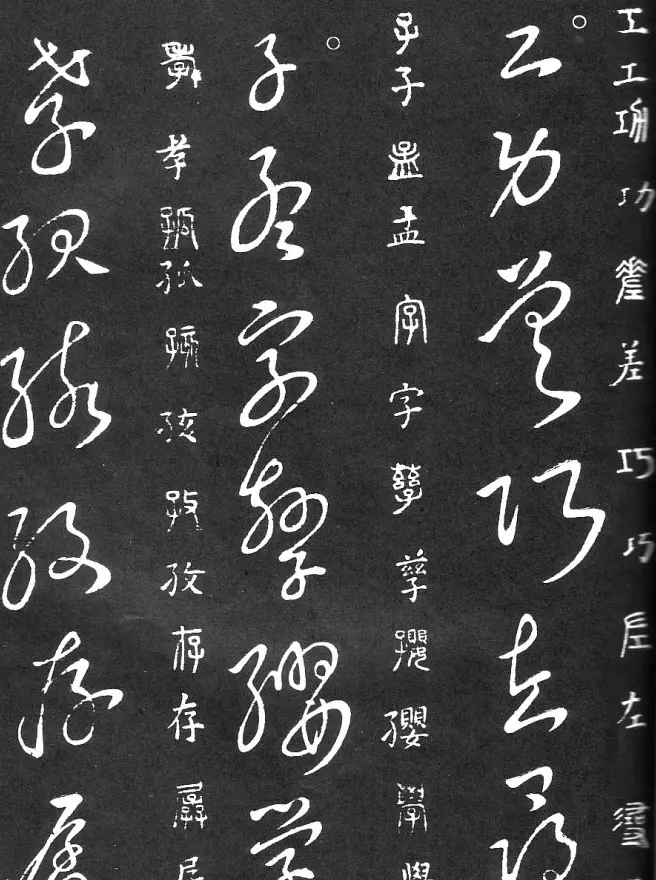 工工功功差差巧巧左左
工功差巧左尋
子子孟孟字字孳孳孾孾學學
子孟字孳孾學
孝孝孤孤孩孩孜孜存存孱
孝孤孩孜存孱